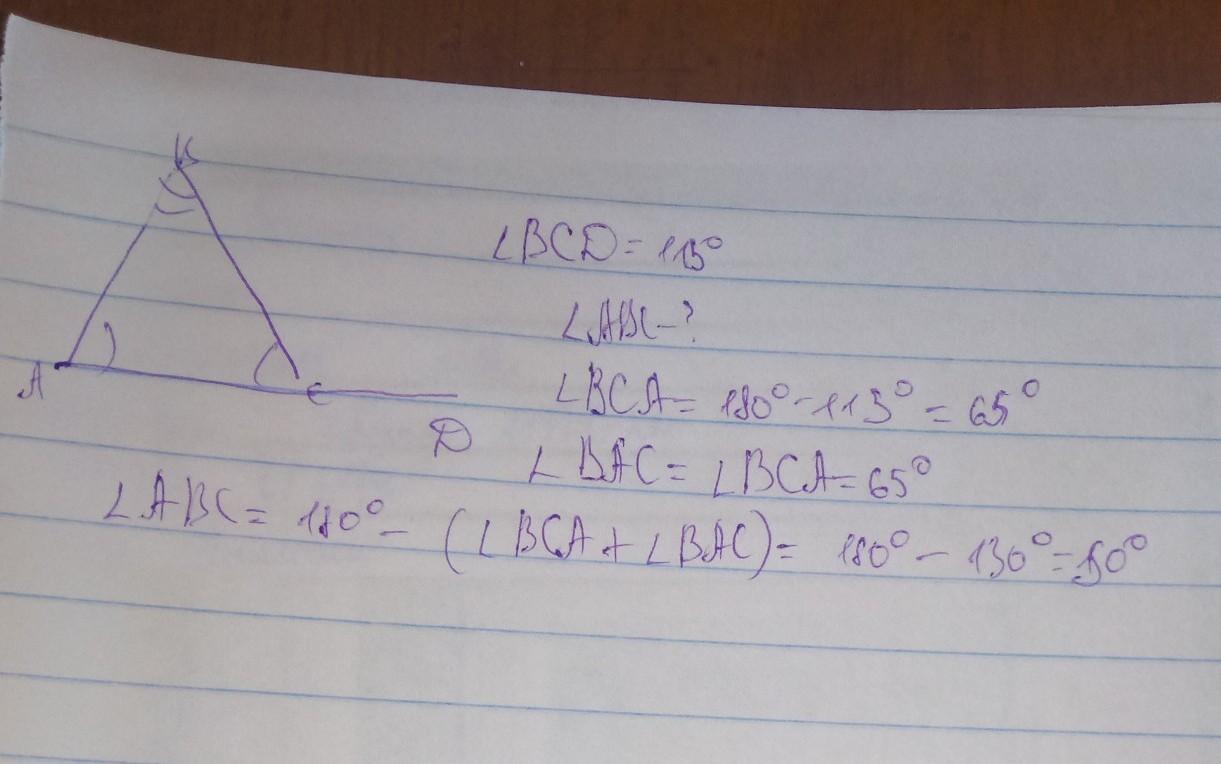 B
∠BCD = 115°
∠ABC - ?
A
C
∠BCA = 180° - 115° = 65°
D
∠BAC = ∠BCA = 65°
∠ABC = 180° - (∠BCA + ∠BAC) = 180° - 130° = 50°